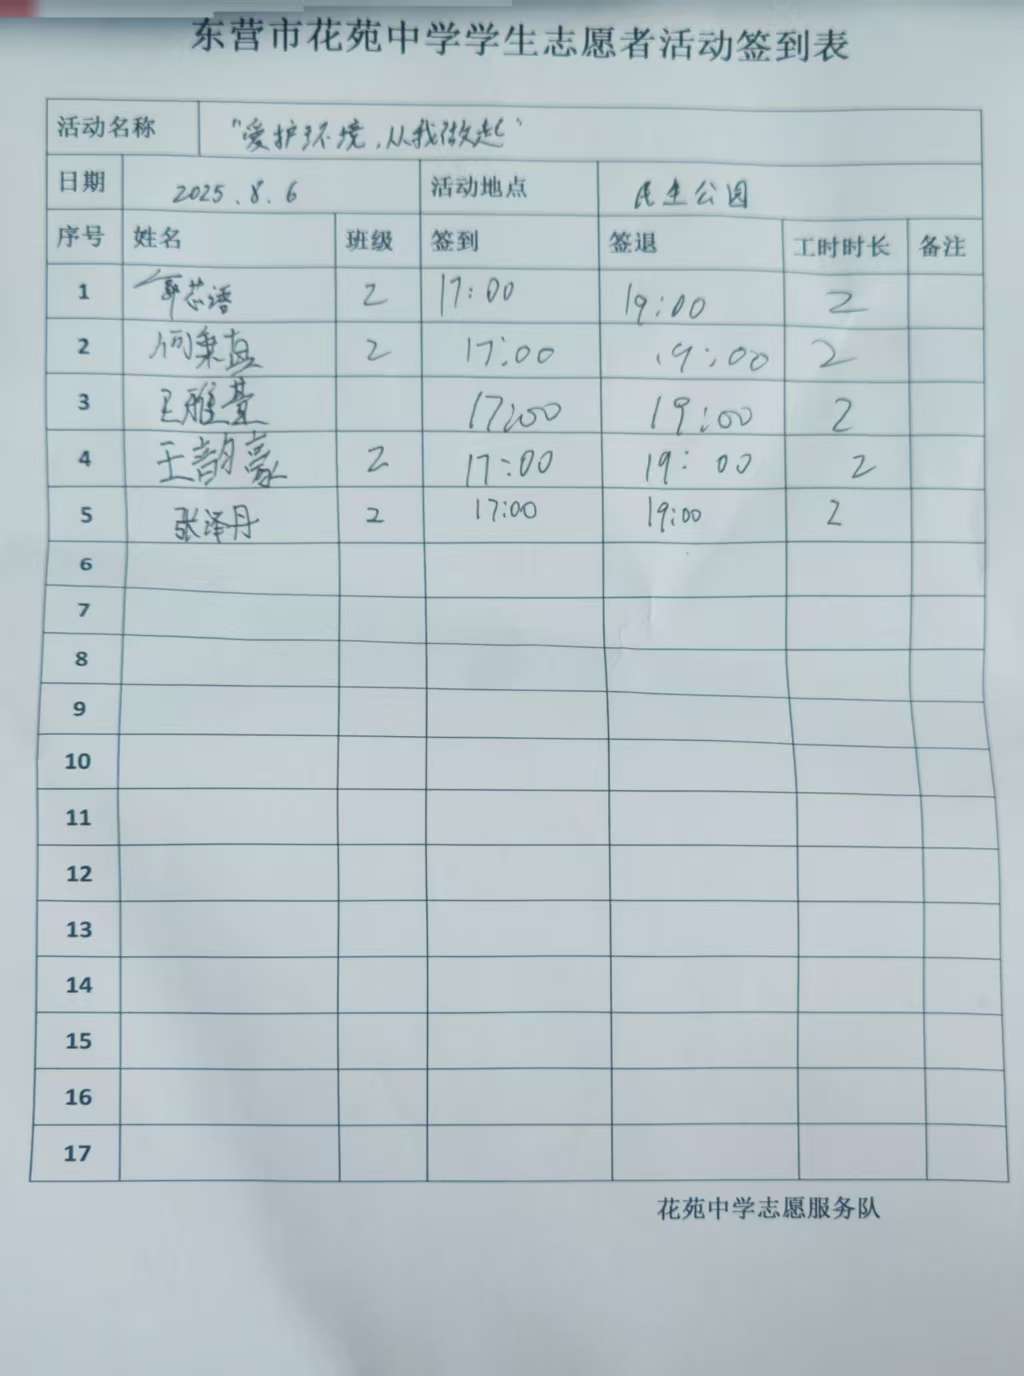 东营市花苑中学学生志愿者活动签到表
活动名称 "爱护环境,从我做起"
日期 2025.8.6 活动地点 民生公园
序号 姓名 班级 签到 签退 工时时长 备注
1 郭芯语 2 17:00 19:00 2
2 何秉真 2 17:00 19:00 2
3 王雅萱 17:00 19:00 2
4 王韵豪 2 17:00 19:00 2
5 张泽丹 2 17:00 19:00 2
6
7
8
9
10
11
12
13
14
15
16
17
花苑中学志愿服务队